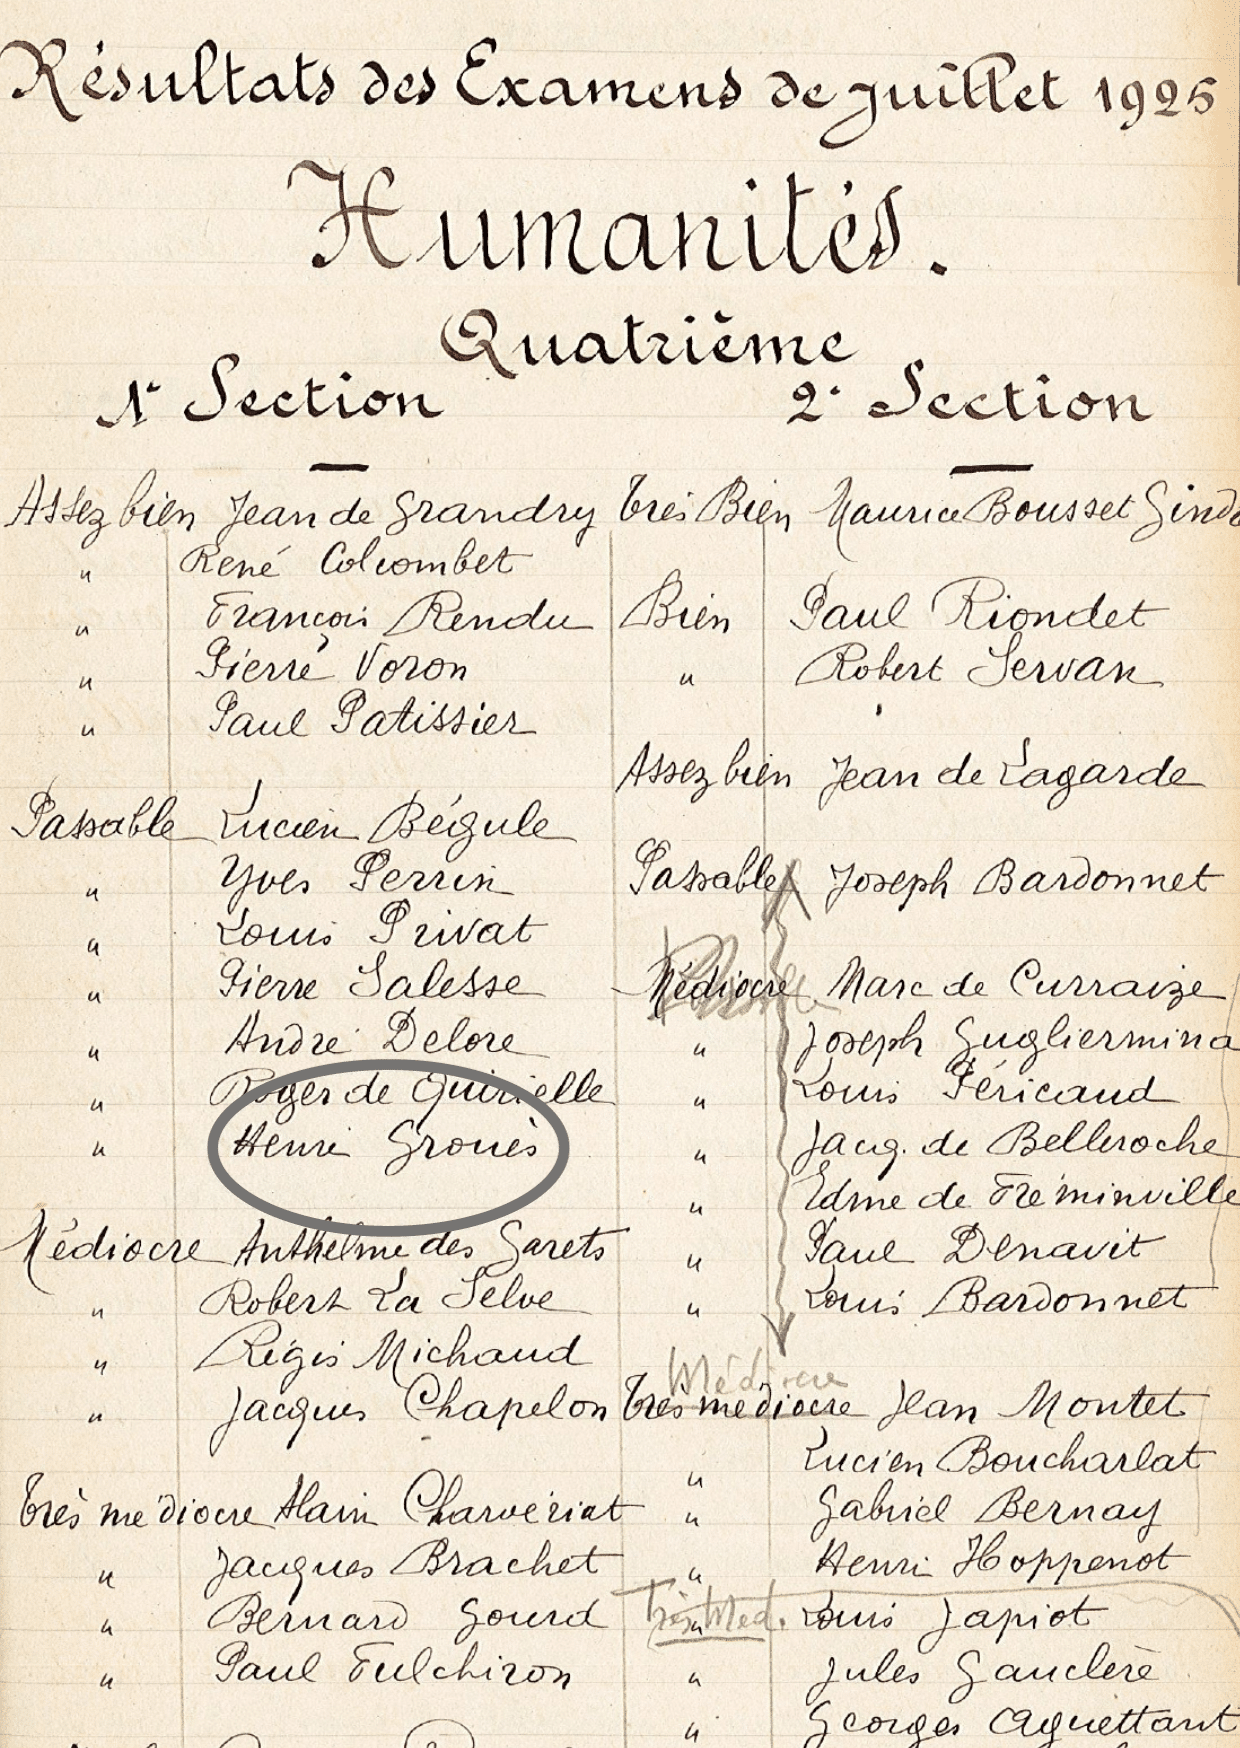 Résultats des Examens de juillet 1925
Humanités.
Quatrième
1e Section
Assez bien Jean de Grandry
" René Colcombet
" François Rendu
" Pierre Voron
" Paul Patissier
Passable Lucien Bégule
" Yves Perrin
" Louis Privat
" Pierre Salesse
" André Delore
" Roger de Quirielle
" Henri Grouès
Médiocre Anthelme des Garets
" Robert La Selve
" Régis Michaud
" Jacques Chapelon
Très médiocre Alain Charvériat
" Jacques Brachet
" Bernard Gourd
" Paul Fulchiron
2e Section
Très Bien Maurice Bousset
Bien Paul Riondet
" Robert Servan
Assez bien Jean de Lagarde
Passable Joseph Bardonnet
Médiocre Marc de Curraize
" Joseph Gugliermina
" Louis Péricaud
" Jacq. de Belleroche
" Edme de Fréminville
" Paul Denavit
" Louis Bardonnet
Médiocre
Très médiocre Jean Montet
" Lucien Boucharlat
" Gabriel Bernay
" Henri Hoppenot
Très Méd. " Louis Japiot
" Jules Gauclère
" Georges Aguettant